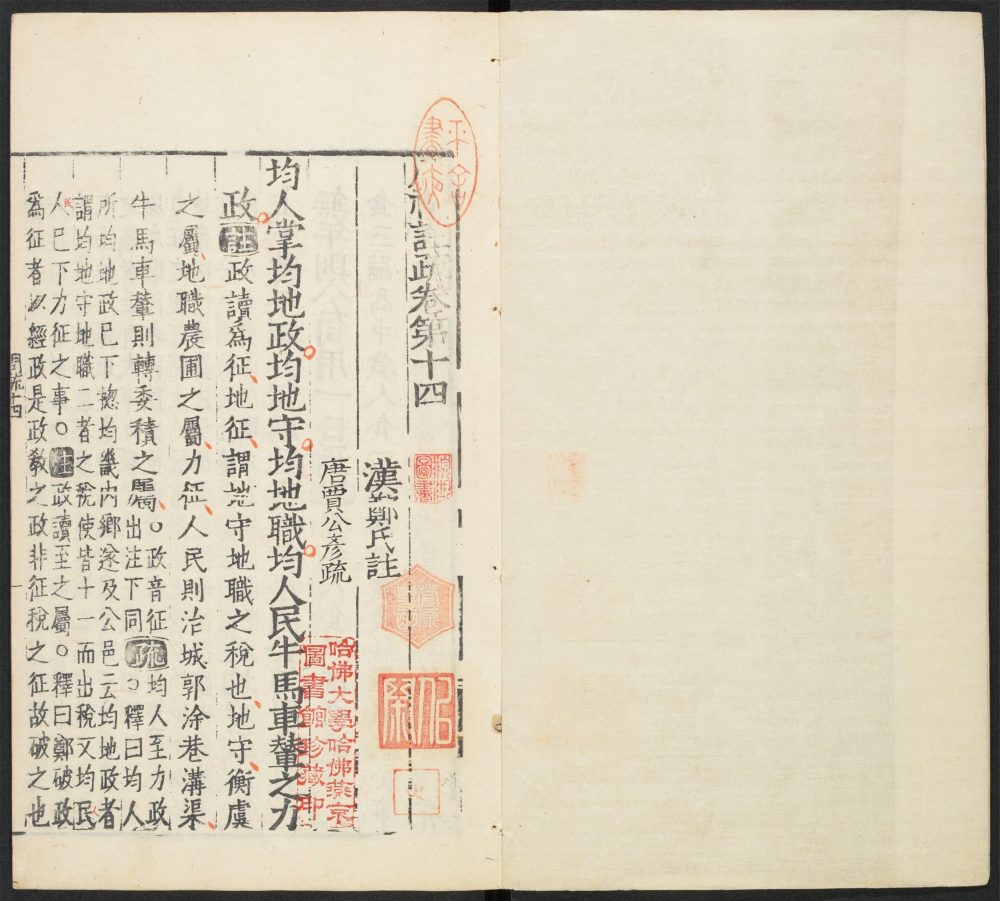 周禮註疏卷第十四
漢鄭氏註
唐賈公彥疏
均人掌均地政均地守均地職均人民牛馬車輦之力
政注政讀爲征地征謂地守地職之稅也地守衡虞
之屬地職農圃之屬力征人民則治城郭涂巷溝渠
牛馬車輦則轉委積之屬○政音征
出注下同
疏
均人至力政
○釋曰均人
所均地政已下揔均畿内鄉遂及公邑云均地政者
謂均地守地職二者之稅使皆十一而出稅又均民
人已下力征之事○注政讀至之屬○釋曰鄭破政
爲征者以經政是政敎之政非征稅之征故破之也
民
周疏十四
哈佛大學哈佛燕京
圖書館珍藏印